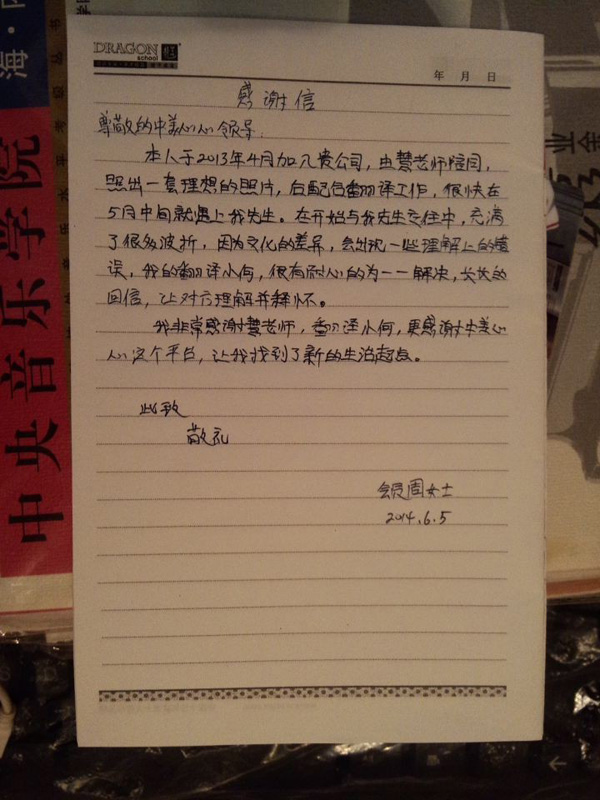 海·
中央音乐学院
DRAGON
school
年 月 日
感谢信
尊敬的中美心心领导:
本人于2013年4月加入贵公司,由慧老师陪同,
照出一套理想的照片,后配合翻译工作,很快在
5月中旬就遇上我先生。在开始与我先生交往中,充满
了很多波折,因为文化的差异,会出现一些理解上的错
误,我的翻译小何,很有耐心的为一一解决,长长的
回信,让对方理解并释怀。
我非常感谢慧老师,翻译小何,更感谢中美心
心这个平台,让我找到了新的生活起点。
此致
敬礼
会员周女士
2014.6.5
业金